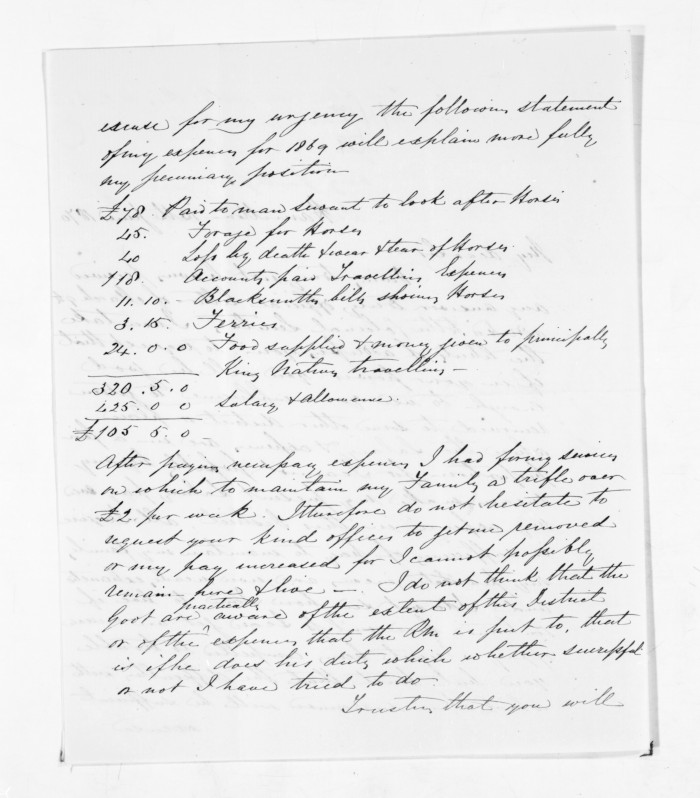 excuse for my urgency the following statement
of my expences for 1869 will explain more fully
my pecuniary position
£78. Paid to man servant to look after Horses
45. Forage for Horses
40 Loss by death & wear & tear of Horses
118 Accounts paid Travelling Expences
11.10.- Blacksmiths bills shoeing Horses
3.15. Ferries
24.0.0 Food supplied & money given to principally
King Natives travelling -
320.5.0
425.0 0 Salary & allowance.
£105 5.0 -
After paying expences I had for my services
on which to maintain my Family a trifle over
£2 per week. I therefore do not hesitate to
request your kind offices to get me removed
or my pay increased for I cannot possibly
remain here & live -. I do not think that the
Govt are practically aware of the extent of this District
or of the expences that the RM is put to, that
is if he does his duty which whether successful
or not I have tried to do.
Trusting that you will